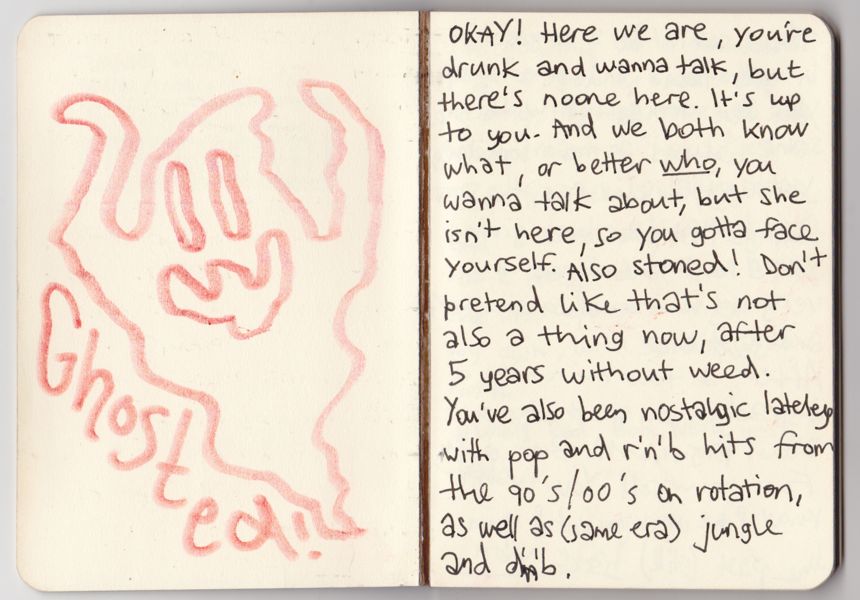 Ghosted!!
OKAY! Here we are, you're
drunk and wanna talk, but
there's noone here. It's up
to you. And we both know
what, or better who, you
wanna talk about, but she
isn't here, so you gotta face
yourself. Also stoned! Don't
pretend like that's not
also a thing now, after
5 years without weed.
You've also been nostalgic lateley
with pop and r'n'b hits from
the 90's/00's on rotation,
as well as (same era) jungle
and d'n'b.